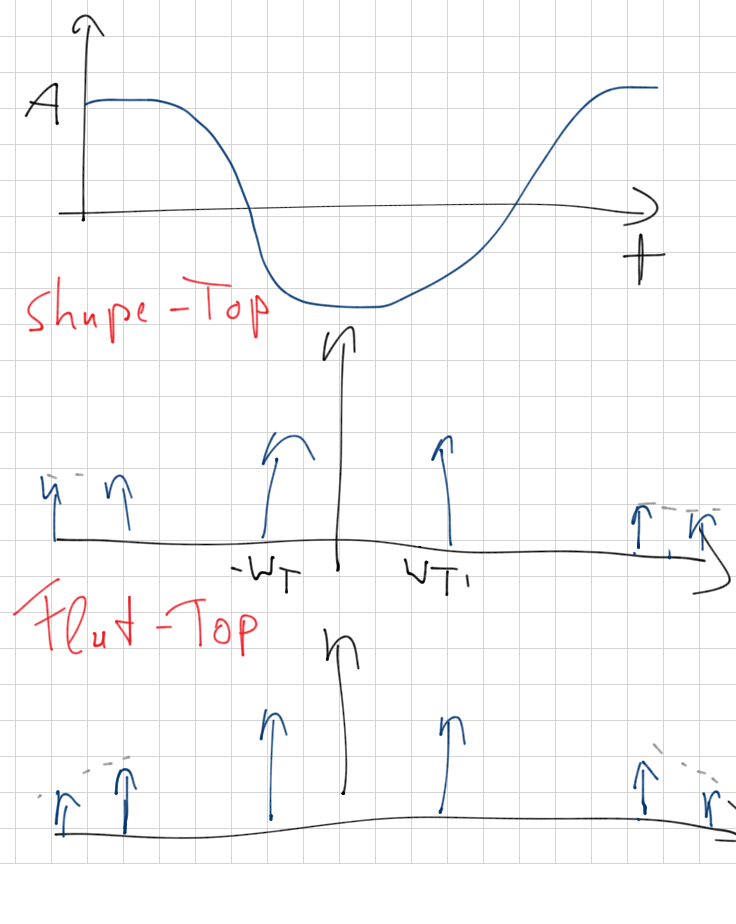 A
t
Shape-Top
-WT
WT
Flat-Top